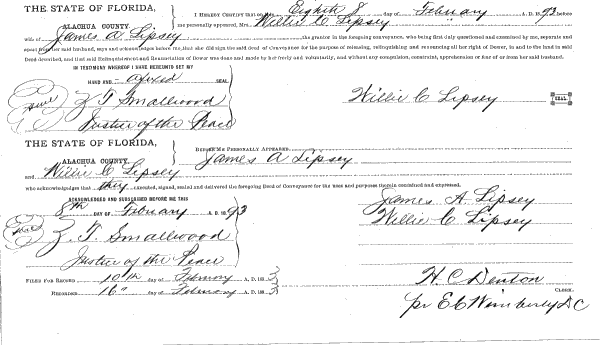 THE STATE OF FLORIDA,
ALACHUA COUNTY.
I HEREBY CERTIFY that on this Eighth 8 day of February A. D. 93 before
me personally appeared, Mrs. Willie C Lipsey
wife of James A. Lipsey the grantor in the foregoing conveyance, who being first duly questioned and examined by me, separate and
apart from her said husband, says and acknowledges before me, that she did sign the said deed of Conveyance for the purpose of releasing, relinquishing and renouncing all her right of Dower, in and to the land in said
Deed described, and that said Relinquishment and Renunciation of Dower was done and made by her freely and voluntarily, and without any compulsion, constraint, apprehension or fear of or from her said husband.
IN TESTIMONY WHEREOF I HAVE HEREUNTO SET MY
HAND AND afixed SEAL
Z T Smallwood
Justice of the Peace
Willie C Lipsey
SEAL.
THE STATE OF FLORIDA,
ALACHUA COUNTY.
BEFORE ME PERSONALLY APPEARED
James A Lipsey
and Willie C Lipsey
who acknowledges that they executed, signed, sealed and delivered the foregoing Deed of Conveyance for the uses and purposes therein contained and expressed.
ACKNOWLEDGED AND SUBSCRIBED BEFORE ME THIS
8th DAY OF February A. D. 1893
Z. T. Smallwood
Justice of the Peace
James A. Lipsey
Willie C Lipsey
FILED FOR RECORD 10th day of February A. D. 18
RECORDED 16" day of February A. D. 18
H. C Denton
CLERK.
pr E C Wimberly D C